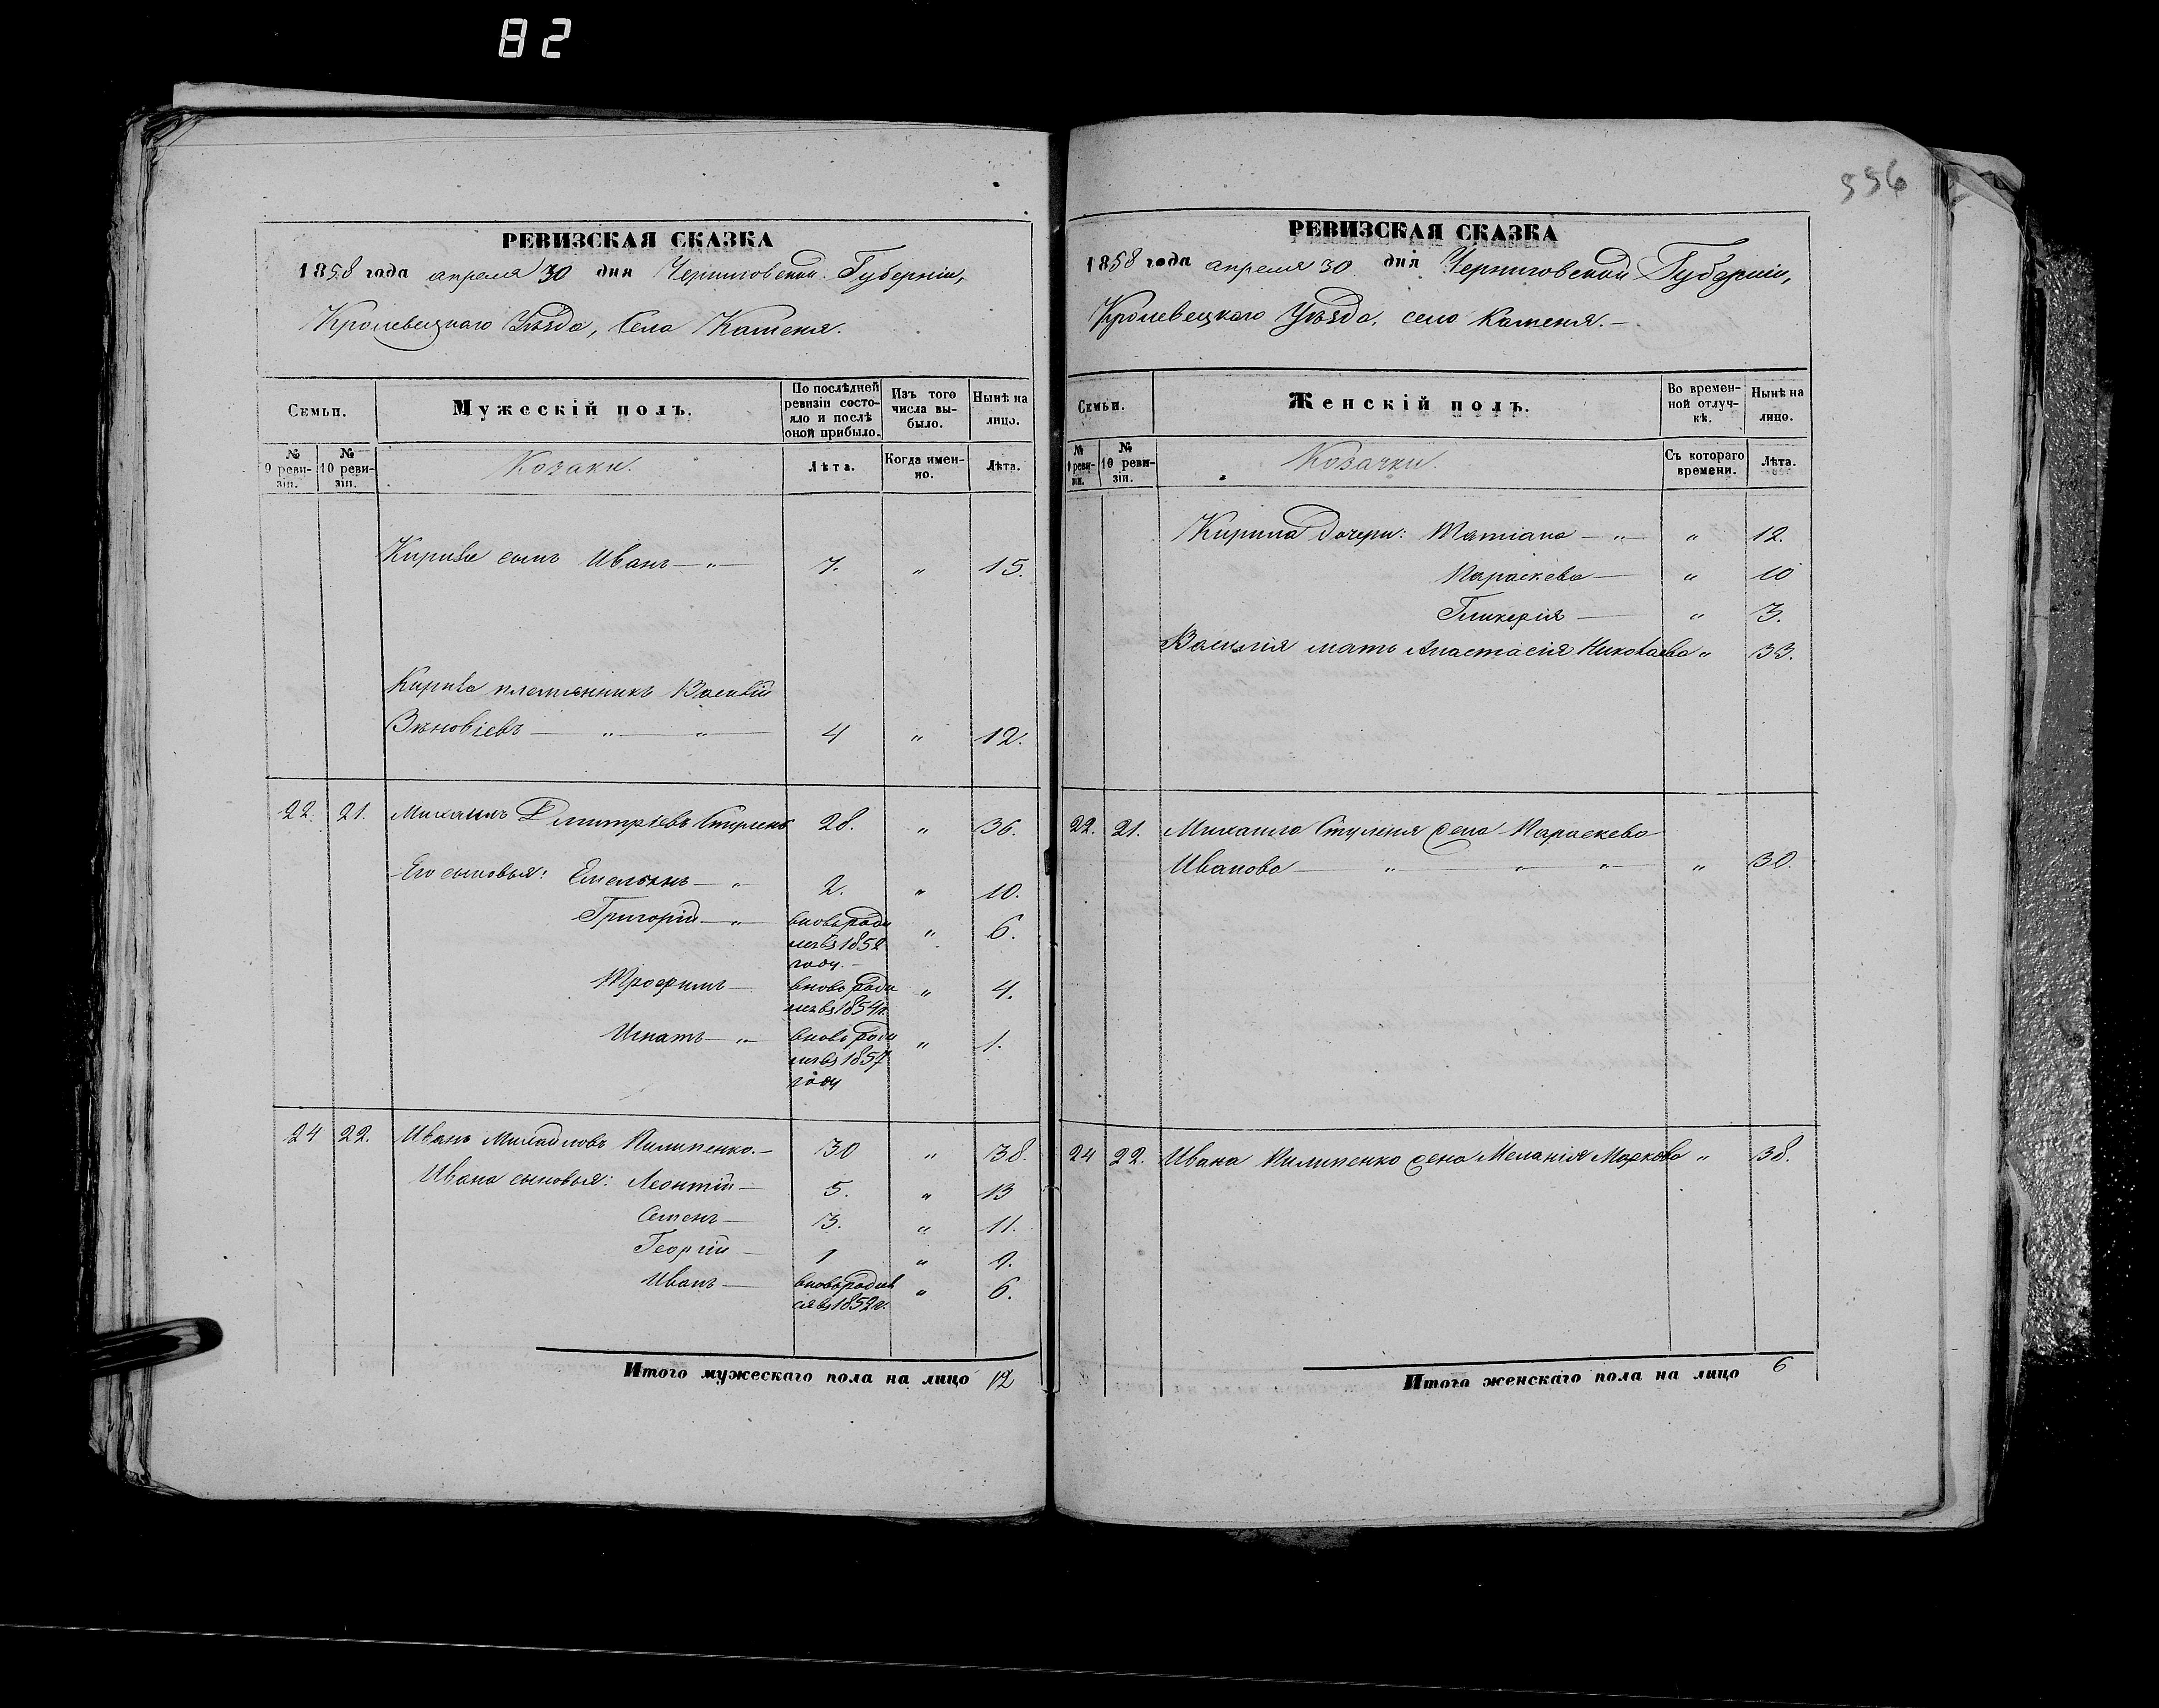 82
РЕВИЗСКАЯ СКАЗКА
1858 года апреля 30 дня Черниговской Губерніи,
Кролевецкаго Уѣзда, Села Каменя.
Семьи.
Мужескій полъ.
По послѣдней ревизіи состояло и послѣ оной прибыло.
Изъ того числа выбыло.
Нынѣ на лицо.
№ 9 ревизіи.
№ 10 ревизіи.
Козаки.
Лѣта.
Когда именно.
Лѣта.
Кирила сынъ Иванъ — " — 7. " 15.
Кирила племянникъ Василій
Зѣновіевъ — " — " — 4 " 12.
22. 21. Михаилъ Дмитріевъ 28. " 36.
Его сыновья: Емельянъ — " 2. " 10.
Григорій — " — вновь роди " 6.
лся въ 1852
году. —
Трофимъ — вновь роди " 4.
лся въ 1854 г.
Игнатъ — " — вновь роди " 1.
лся въ 1857
году
24 22. Иванъ Михайловъ Пилипенко. — 30 " 38.
Ивана сыновья: Леонтій — 5. " 13
Семенъ — 3. " 11.
Георгій — 1 " 9.
Иванъ — вновь родил " 6.
ся въ 1852 г.
Итого мужескаго пола на лицо 12
556
РЕВИЗСКАЯ СКАЗКА
1858 года апреля 30 дня Черниговской Губерніи,
Кролевецкаго Уѣзда, село Каменя. —
Семьи.
Женскій полъ.
Во временной отлучкѣ.
Нынѣ на лицо.
№ 9 ревизіи.
№ 10 ревизіи.
Козачки.
Съ котораго времени.
Лѣта.
Кирила дочери: Татіана — " — " 12.
Параскева — " 10
Гликерія — " 3.
Василія мать Анастасія Николаева " 33.
22. 21. Михаила Ступеня жена Параскева
Иванова — " — " — " — " 30.
24 22. Ивана Пилипенко жена Меланія Маркова " 38.
Итого женскаго пола на лицо 6